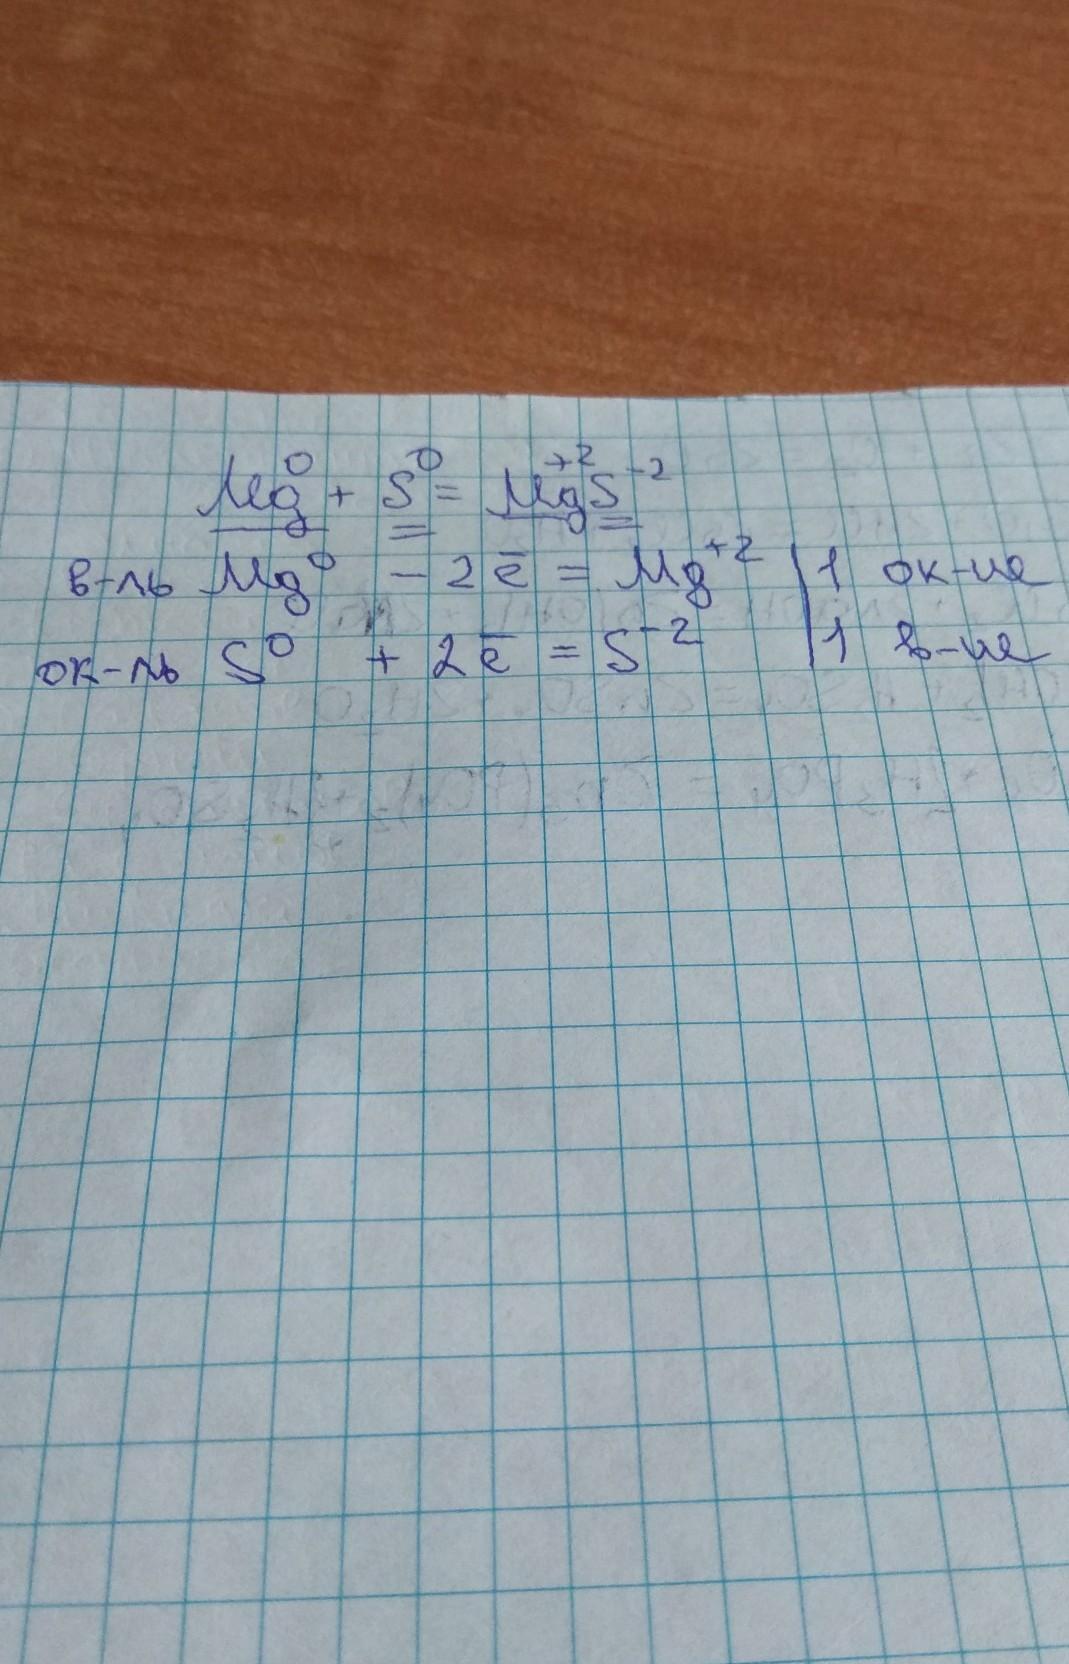 Mg⁰ + S⁰ = Mg⁺²S⁻²
в-ль Mg⁰ - 2ē = Mg⁺² | 1 ок-ие
ок-ль S⁰ + 2ē = S⁻² | 1 в-ие